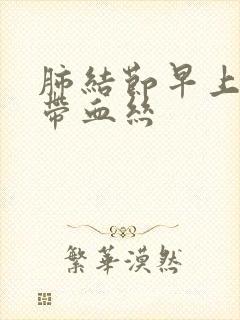 肺結節早上
帶血絲
繁華漠然